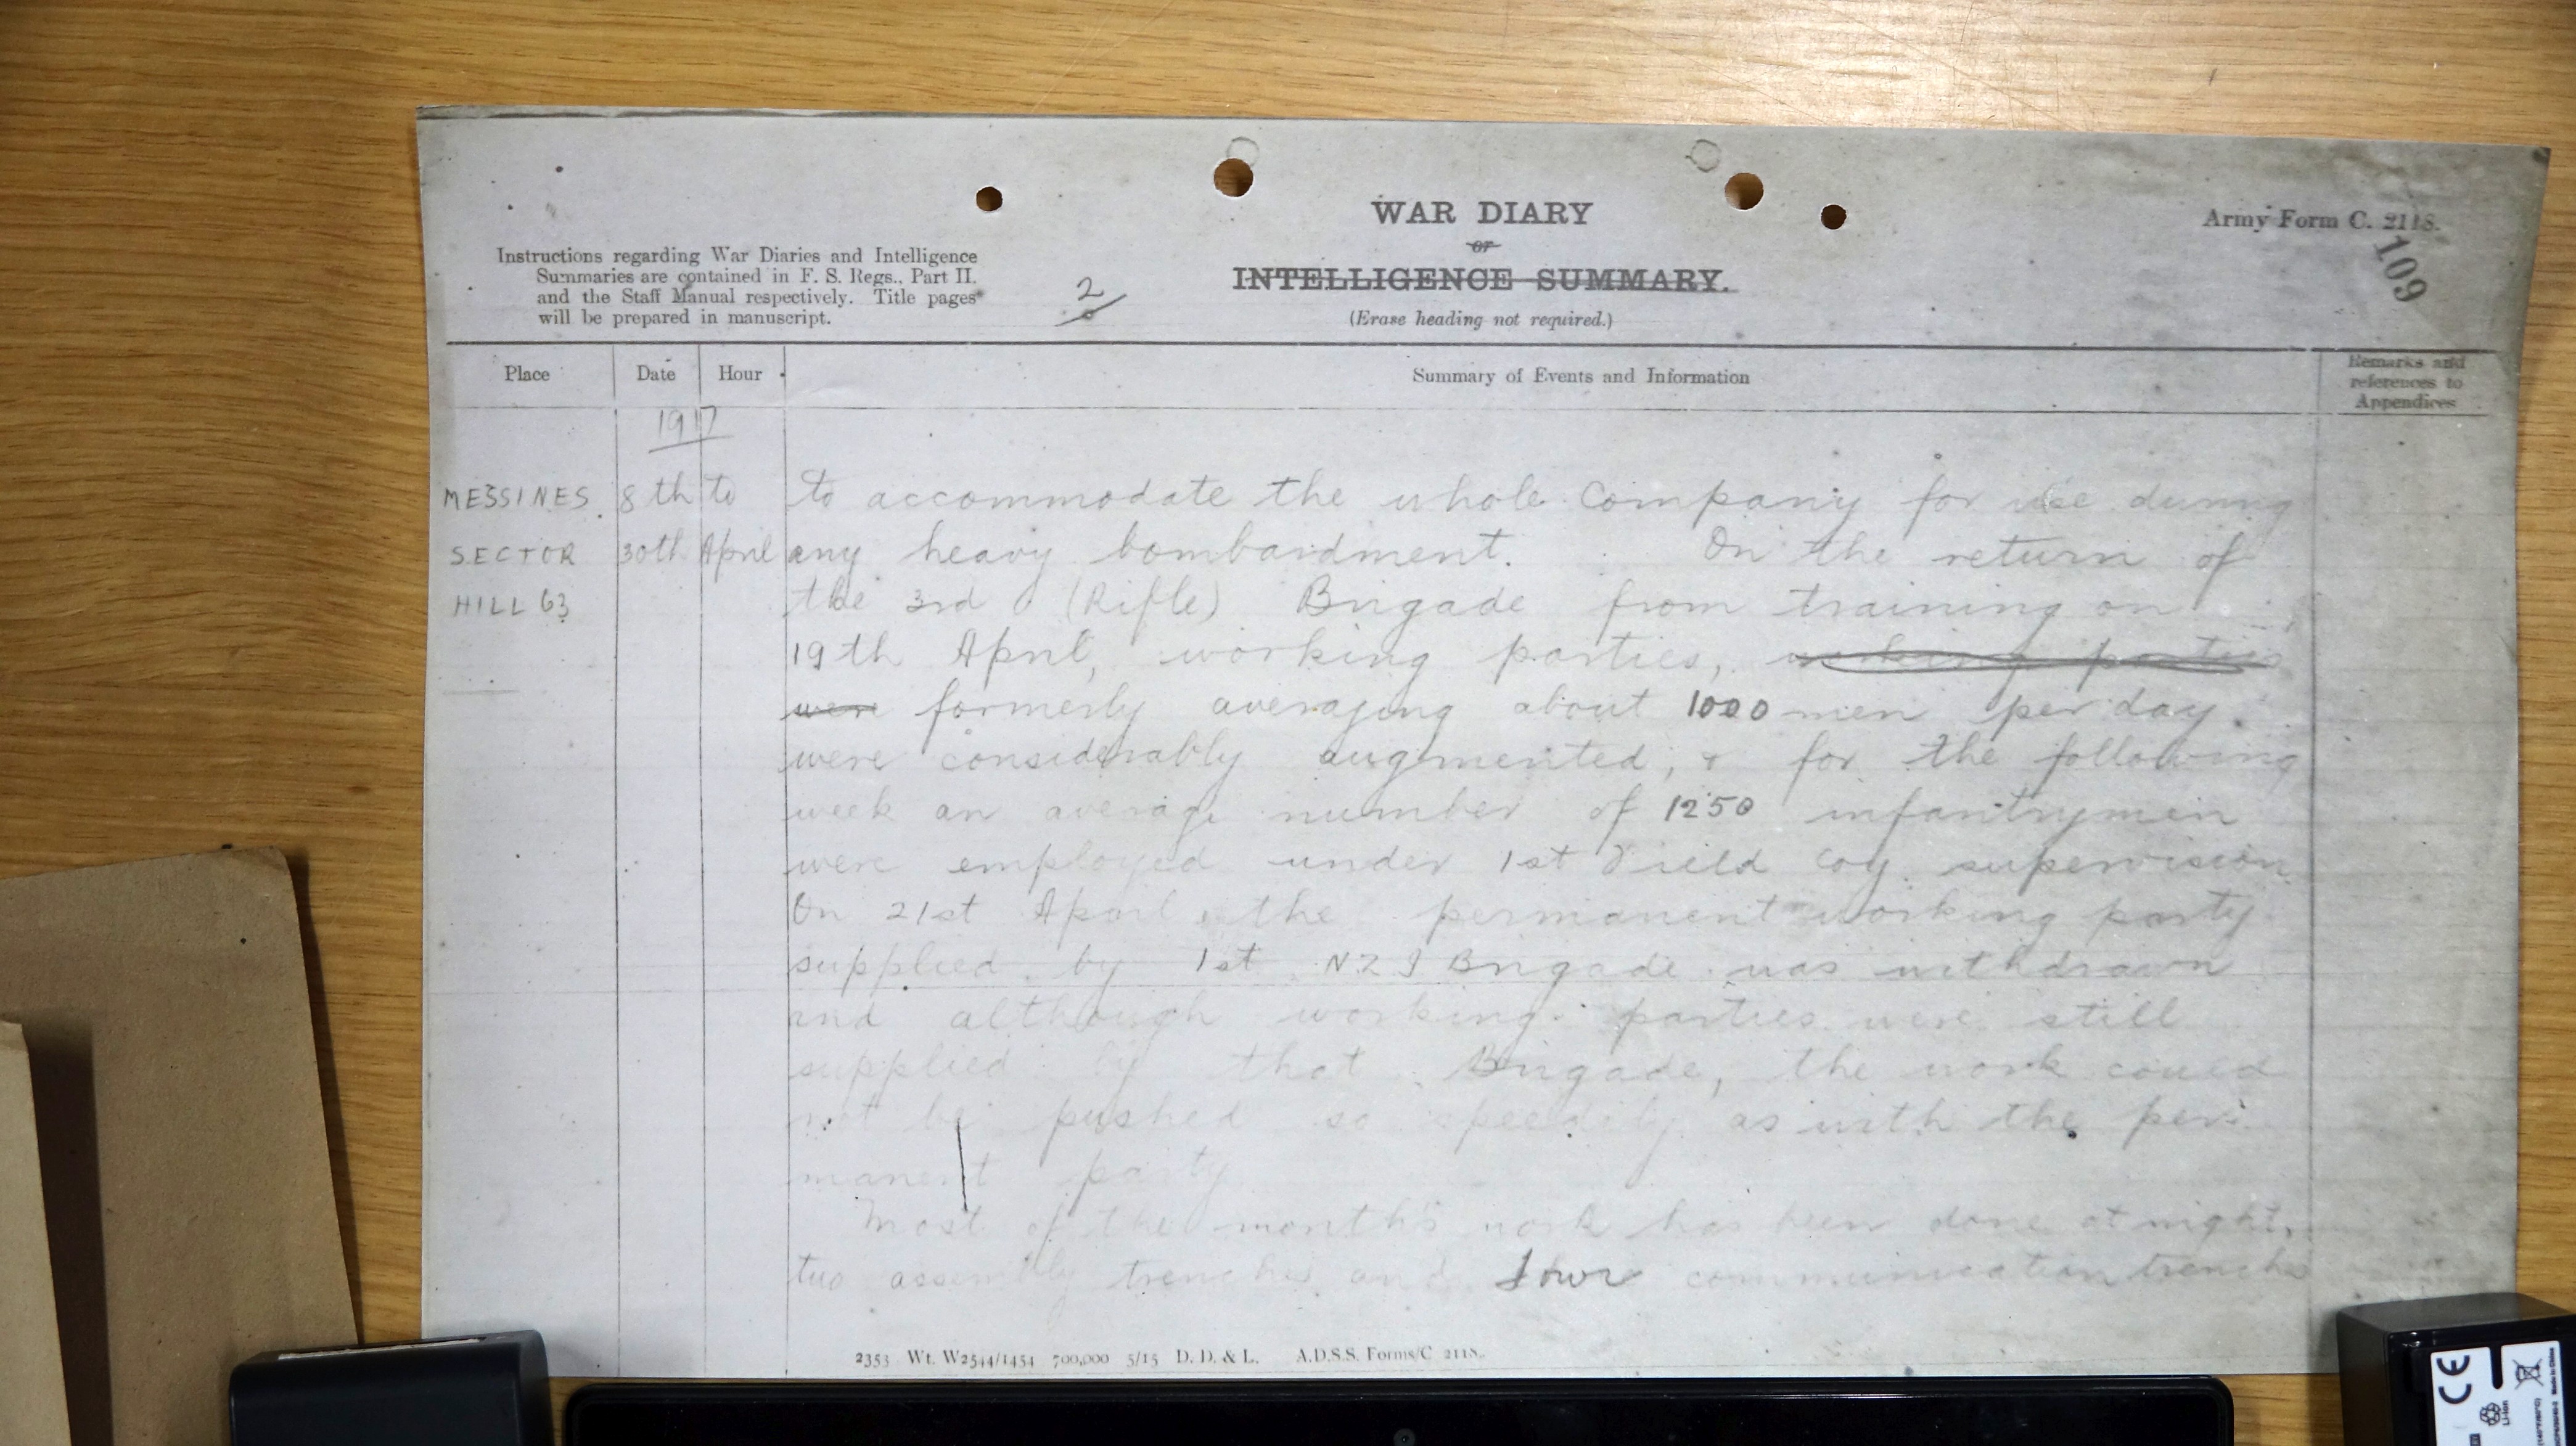 WAR DIARY
or
INTELLIGENCE SUMMARY.
(Erase heading not required.)
Army Form C. 2118.
109
Instructions regarding War Diaries and Intelligence
Summaries are contained in F. S. Regs., Part II.
and the Staff Manual respectively. Title pages
will be prepared in manuscript.
2
Place Date Hour Summary of Events and Information Remarks and references to Appendices
1917
MESSINES 8th to to accommodate the whole Company for use during
SECTOR 30th April any heavy bombardment. On the return of
HILL 63 the 3rd (Rifle) Brigade from training on
19th April, working parties, working parties
were formerly averaging about 1000 men per day.
were considerably augmented, & for the following
week an average number of 1250 infantrymen
were employed under 1st Field Coy. supervision
On 21st April the permanent working party
supplied by 1st NZI Brigade was withdrawn
and although working parties were still
supplied by that Brigade, the work could
not be pushed so speedily as with the per-
manent party
Most of the month's work has been done at night,
two assembly trenches and four communication trenches
2353 Wt. W2544/1454 700,000 5/15 D. D. & L. A.D.S.S. Forms/C 2118.
CE
Li-ion